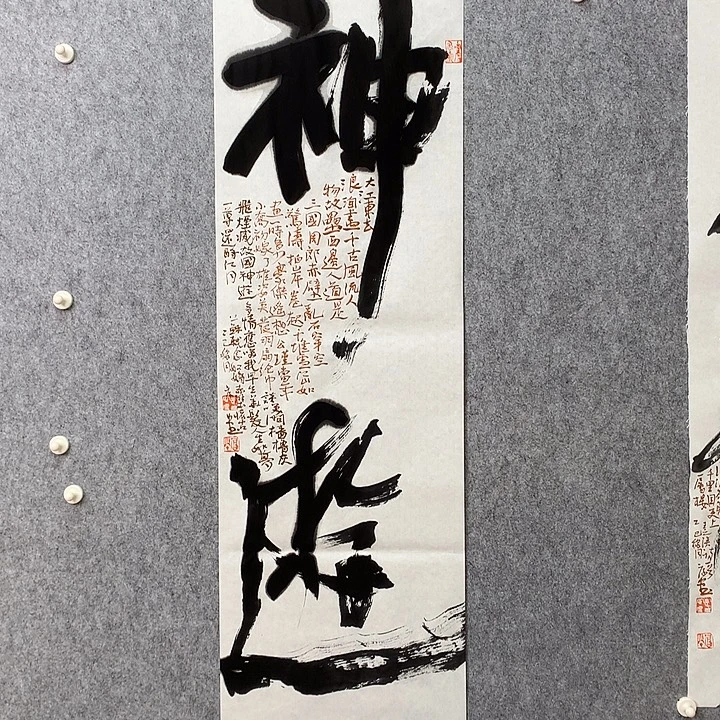 神遊
大江東去
浪淘盡千古風流人
物故壘西邊人道是
三國周郎赤壁亂石穿空
驚濤拍岸卷起千堆雪江山如
畫一時多少豪傑遙想公瑾當年
小喬初嫁了雄姿英發羽扇綸巾談笑間檣櫓灰
飛煙滅故國神遊多情應笑我早生華髮人生如夢
一尊還酹江月
赤壁懷古
千里目更上
一層樓